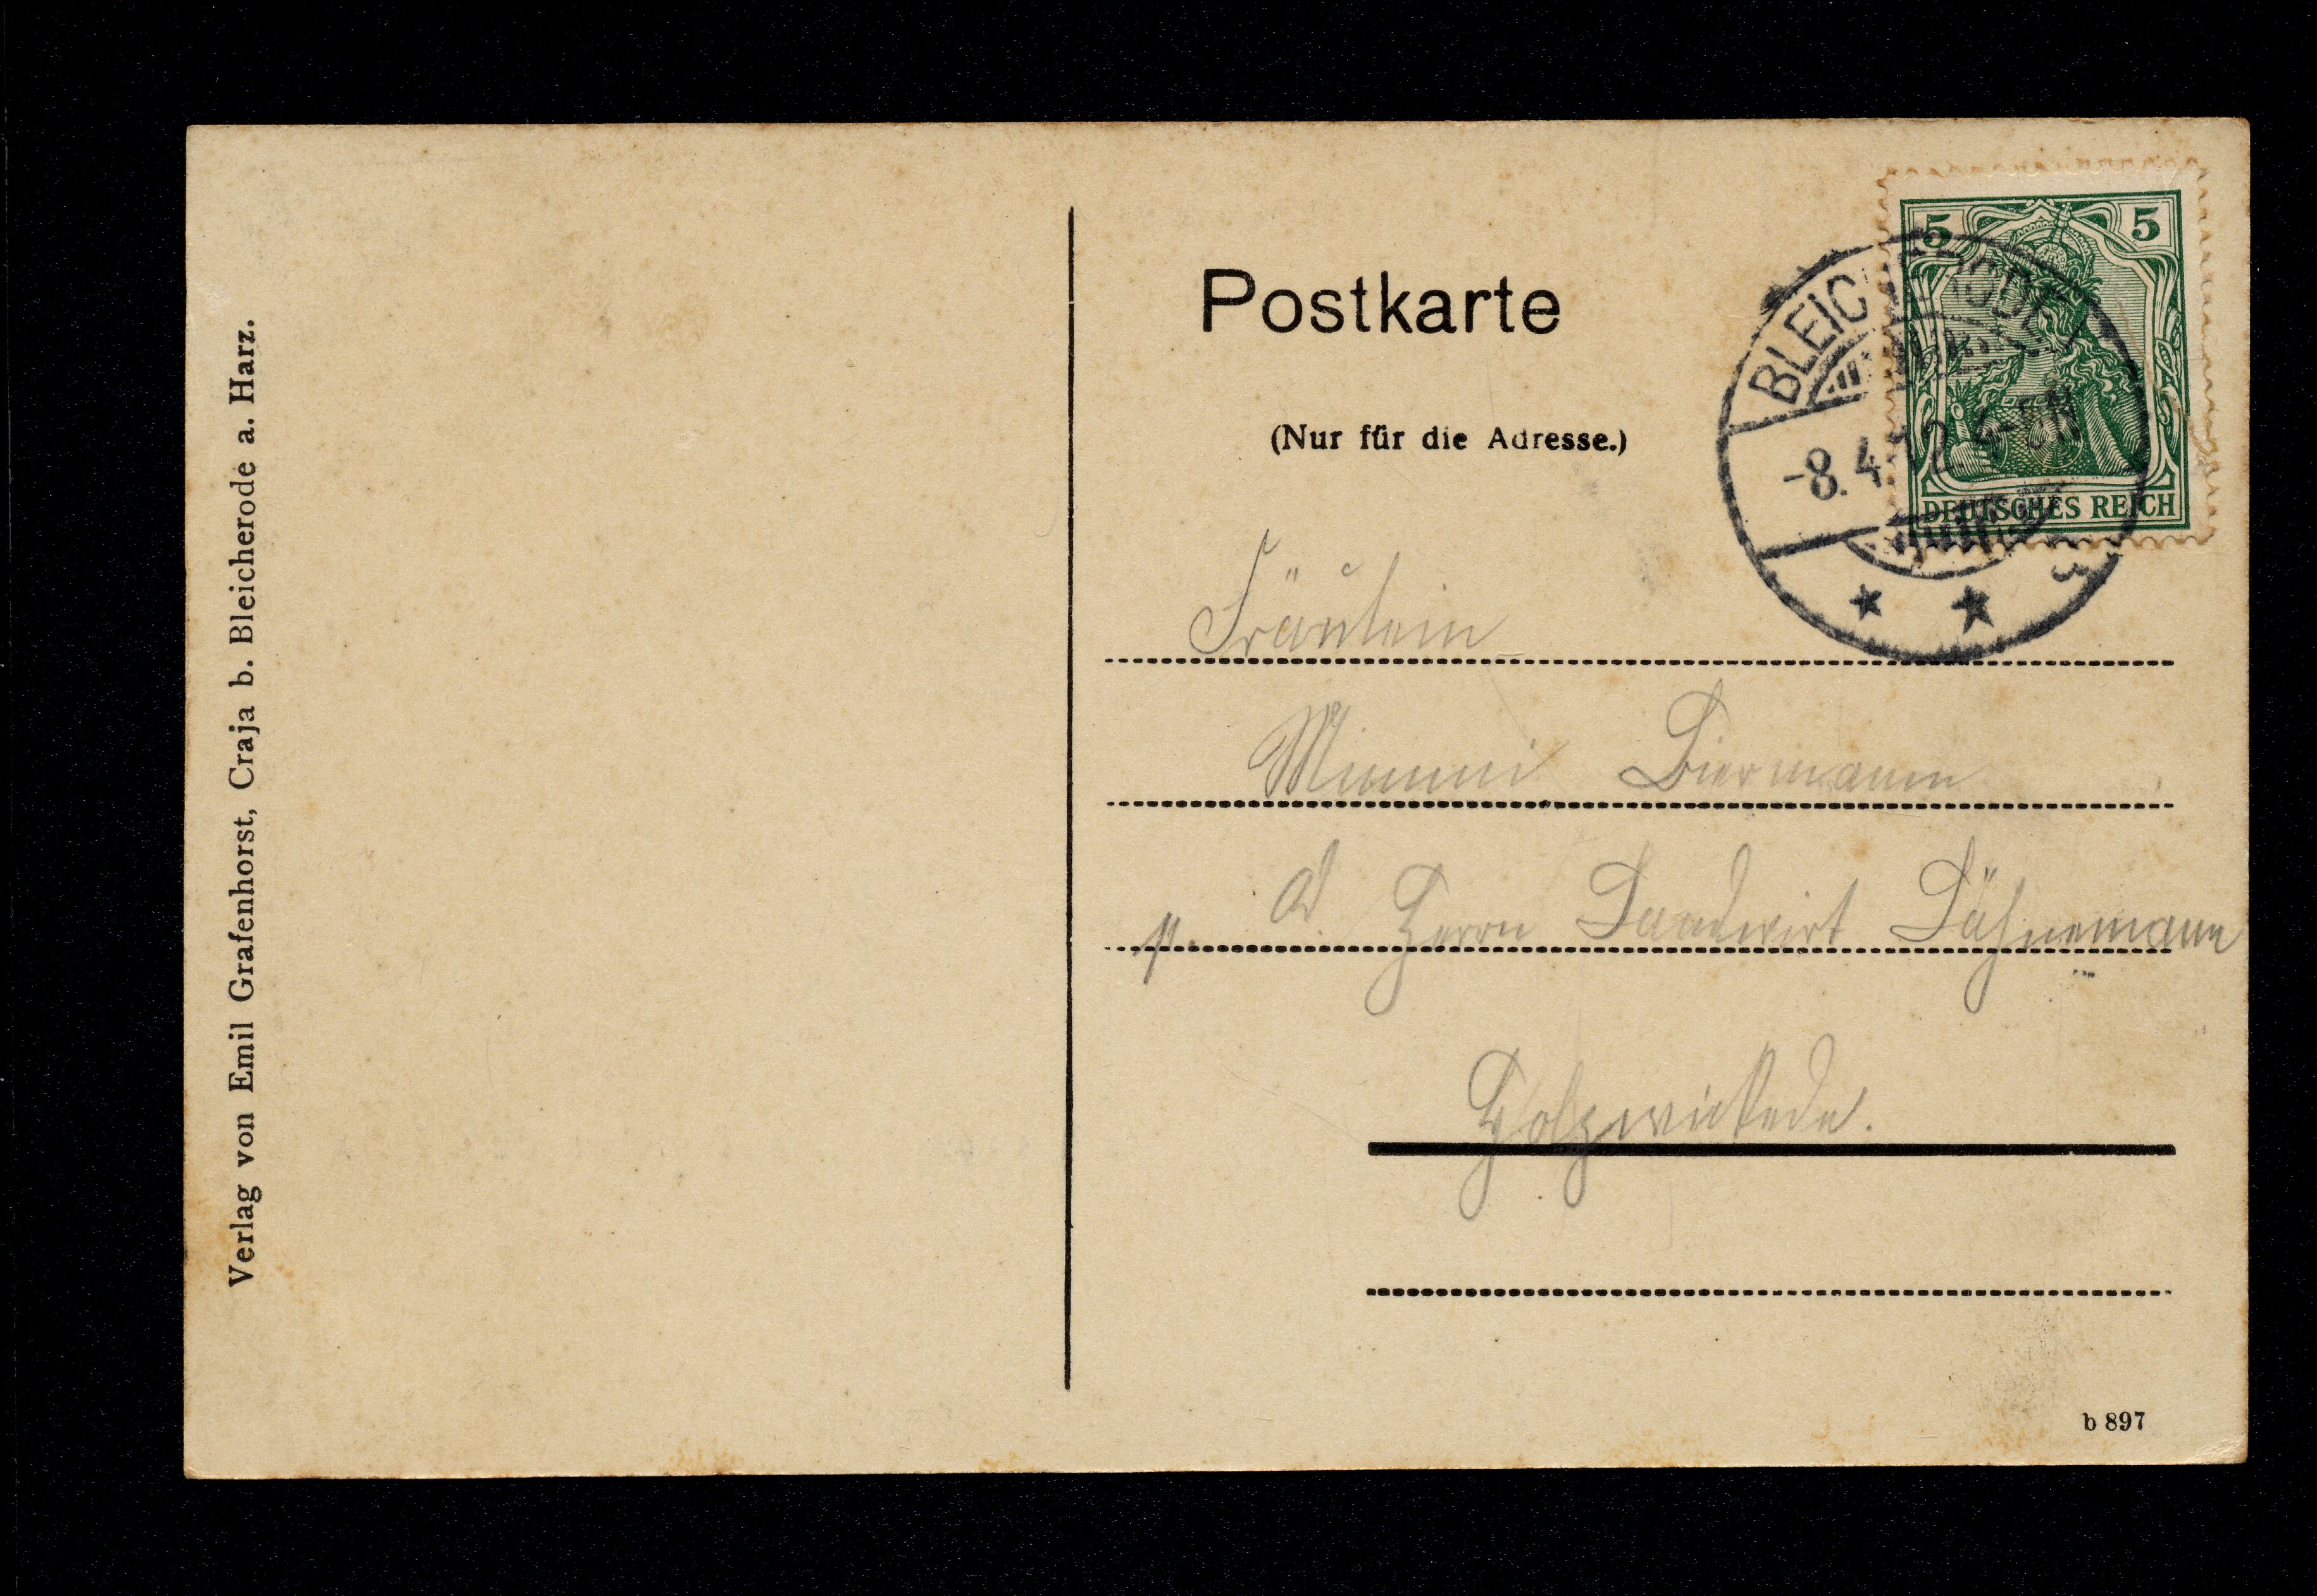 Verlag von Emil Grafenhorst, Craja b. Bleicherode a. Harz.
Postkarte
(Nur für die Adresse.)
5 5
DEUTSCHES REICH
BLEICHERODE
-8.4.12
Fräulein
Minni Biermann
p. Ad. Herrn Landwirt Dähnemann
Holzwickede.
b 897